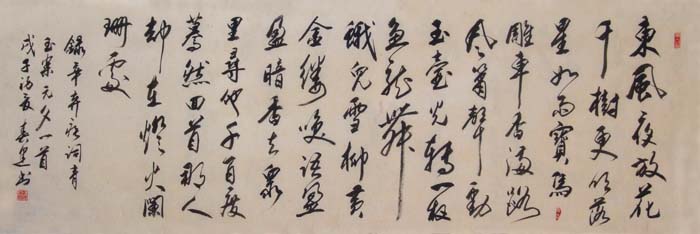 東風夜放花
千樹更吹落
星如雨寶馬
雕車香滿路
鳳簫聲動
玉壺光轉一夜
魚龍舞
蛾兒雪柳黃
金縷笑語盈
盈暗香去眾
里尋他千百度
驀然回首那人
卻在燈火闌
珊處
錄辛弃疾詞青
玉案元夕一首
戊子初夏書